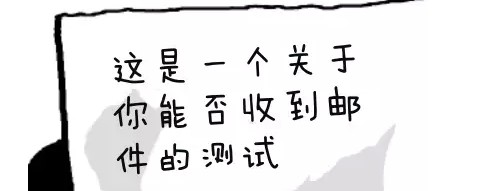 这是一个关于
你能否收到邮
件的测试